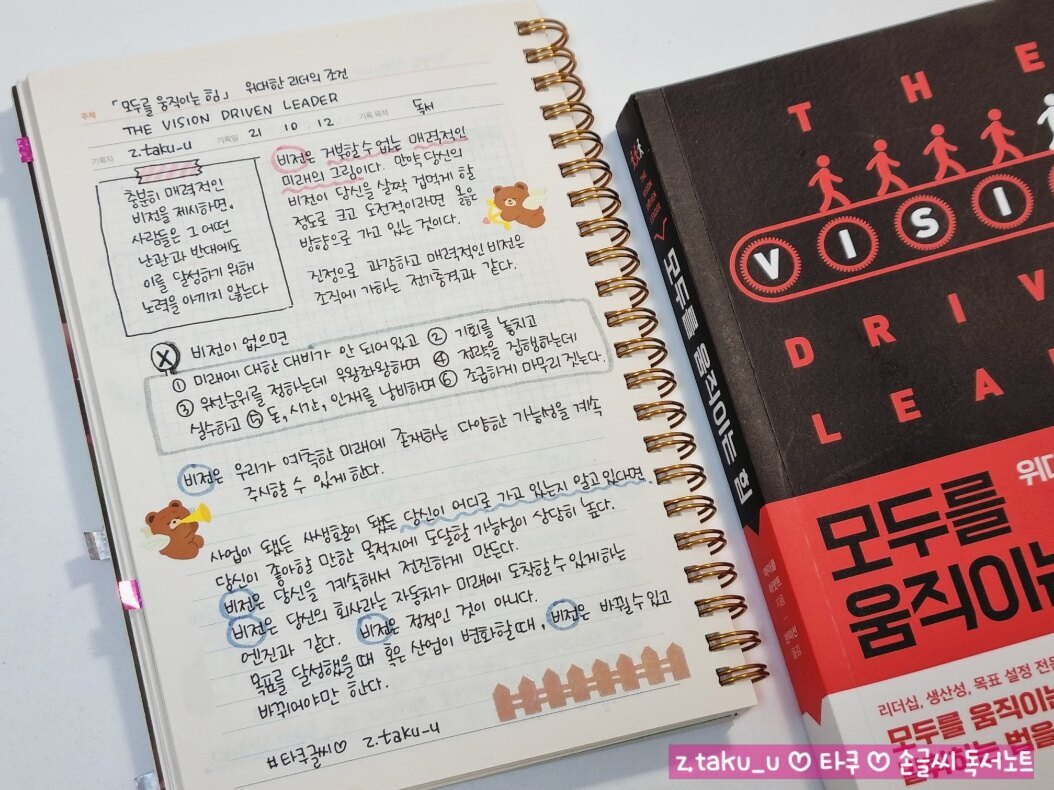 주제 「모두를 움직이는 힘」 위대한 리더의 조건
THE VISION DRIVEN LEADER
기록자 z.taku_u 기록일 21 10 . 12 기록 목적 독서
충분히 매력적인
비전을 제시하면,
사람들은 그 어떤
난관과 반대에도
이를 달성하기 위해
노력을 아끼지 않는다
비전은 거부할 수 없는 매력적인
미래의 그림이다. 만약 당신의
비전이 당신을 살짝 겁먹게 할
정도로 크고 도전적이라면 옳은
방향으로 가고 있는 것이다.
진정으로 과감하고 매력적인 비전은
조직에 가하는 전기충격과 같다.
X 비전이 없으면
① 미래에 대한 대비가 안 되어있고 ② 기회를 놓치고
③ 우선순위를 정하는데 우왕좌왕하며 ④ 전략을 집행하는데
실수하고 ⑤ 돈, 시간, 인재를 낭비하며 ⑥ 조급하게 마무리 짓는다.
비전은 우리가 예측한 미래에 존재하는 다양한 가능성을 계속
주시할 수 있게 한다.
사업이 됐든 사생활이 됐든 당신이 어디로 가고 있는지 알고 있다면,
당신이 좋아할 만한 목적지에 도달할 가능성이 상당히 높다.
비전은 당신을 계속해서 전진하게 만든다.
비전은 당신의 회사라는 자동차가 미래에 도착할 수 있게하는
엔진과 같다. 비전은 정적인 것이 아니다.
목표를 달성했을 때 혹은 산업이 변화할 때, 비전은 바뀔 수 있고
바뀌어야만 한다.
#타쿠글씨♡ z.taku_u
모두를 움직이는 힘
THE
VISI
DRIV
LEA
위대
모두를
움직이는
리더십, 생산성, 목표 설정 전문
모두를 움직이는
법을
z.taku_u ♡ 타쿠 ♡ 손글씨 독서노트